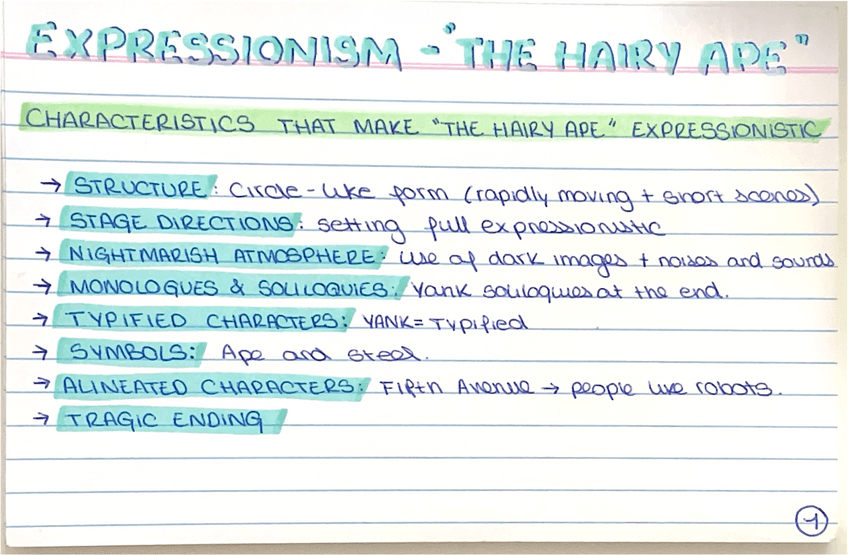 EXPRESSIONISM - "THE HAIRY APE"
CHARACTERISTICS THAT MAKE "THE HAIRY APE" EXPRESSIONISTIC
→ STRUCTURE: Circle-like form (rapidly moving + short scenes)
→ STAGE DIRECTIONS: setting full expressionistic
→ NIGHTMARISH ATMOSPHERE: use of dark images + noises and sounds
→ MONOLOGUES & SOLILOQUIES: Yank soliloquies at the end.
→ TYPIFIED CHARACTERS: YANK = Typified
→ SYMBOLS: Ape and steel.
→ ALINEATED CHARACTERS: Fifth Avenue → people like robots.
→ TRAGIC ENDING
1